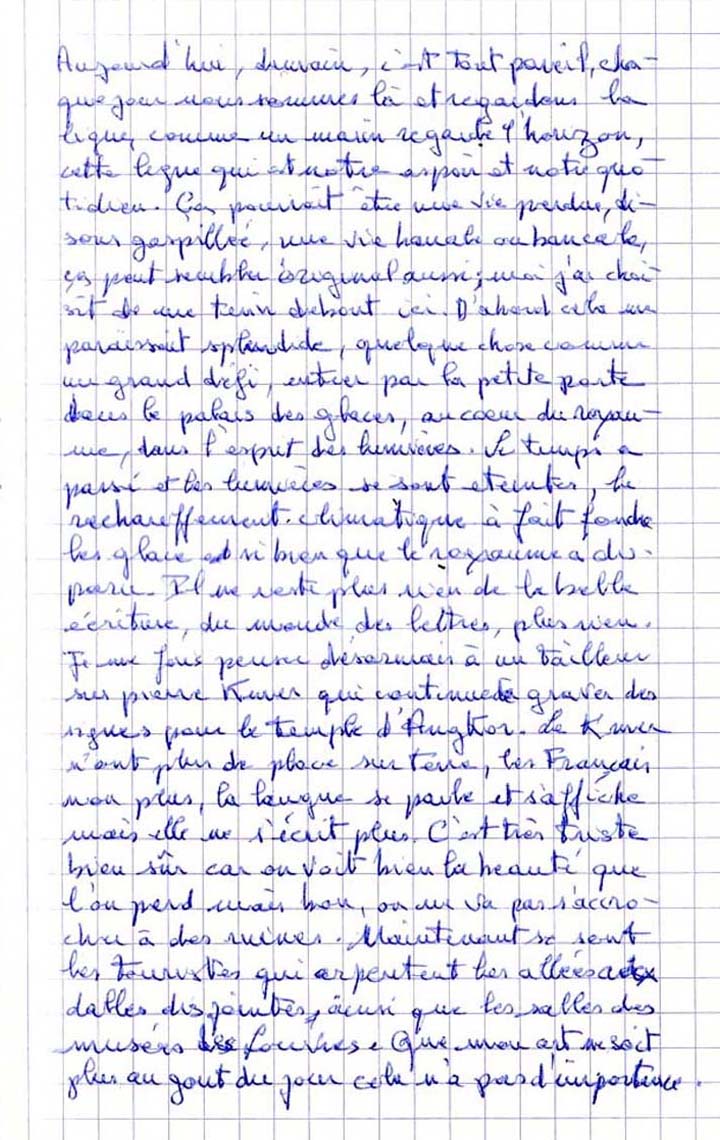 Aujourd'hui, demain, c'est tout pareil, cha-
que jour nous sommes là et regardons la
ligne, comme un marin regarde l'horizon,
cette ligne qui est notre espoir et notre quo-
tidien. Ça pourrait être une vie perdue, di-
sons gaspillée, une vie banale ou bancale,
ça peut sembler original aussi; moi j'ai choi-
sit de me tenir debout ici. D'abord cela me
paraissait splendide, quelque chose comme
un grand défi, entrer par la petite porte
dans le palais des glaces, au coeur du royau-
me, dans l'esprit des lumières. Le temps a
passé et les lumières se sont eteintes, le
rechauffement climatique à fait fondre
les glace et si bien que le royaume a dis-
paru. Il ne reste plus rien de la belle
écriture, du monde des lettres, plus rien.
Je me fais penser désormais à un tailleur
sur pierre Kmer qui continue de graver des
signes pour le temple d'Angkor. Le Kmer
n'ont plus de place sur terre, les Français
non plus, la langue se parle et s'affiche
mais elle ne s'écrit plus. C'est très triste
bien sûr car on voit bien la beauté que
l'on perd mais bon, on ne va pas s'accro-
cher à des ruines. Maintenant se sont
les touristes qui arpentent les allées aux
dalles disjointes, ainsi que les salles des
musées les Louvres. Que mon art ne soit
plus au gout du jour cela n'a pas d'importance.